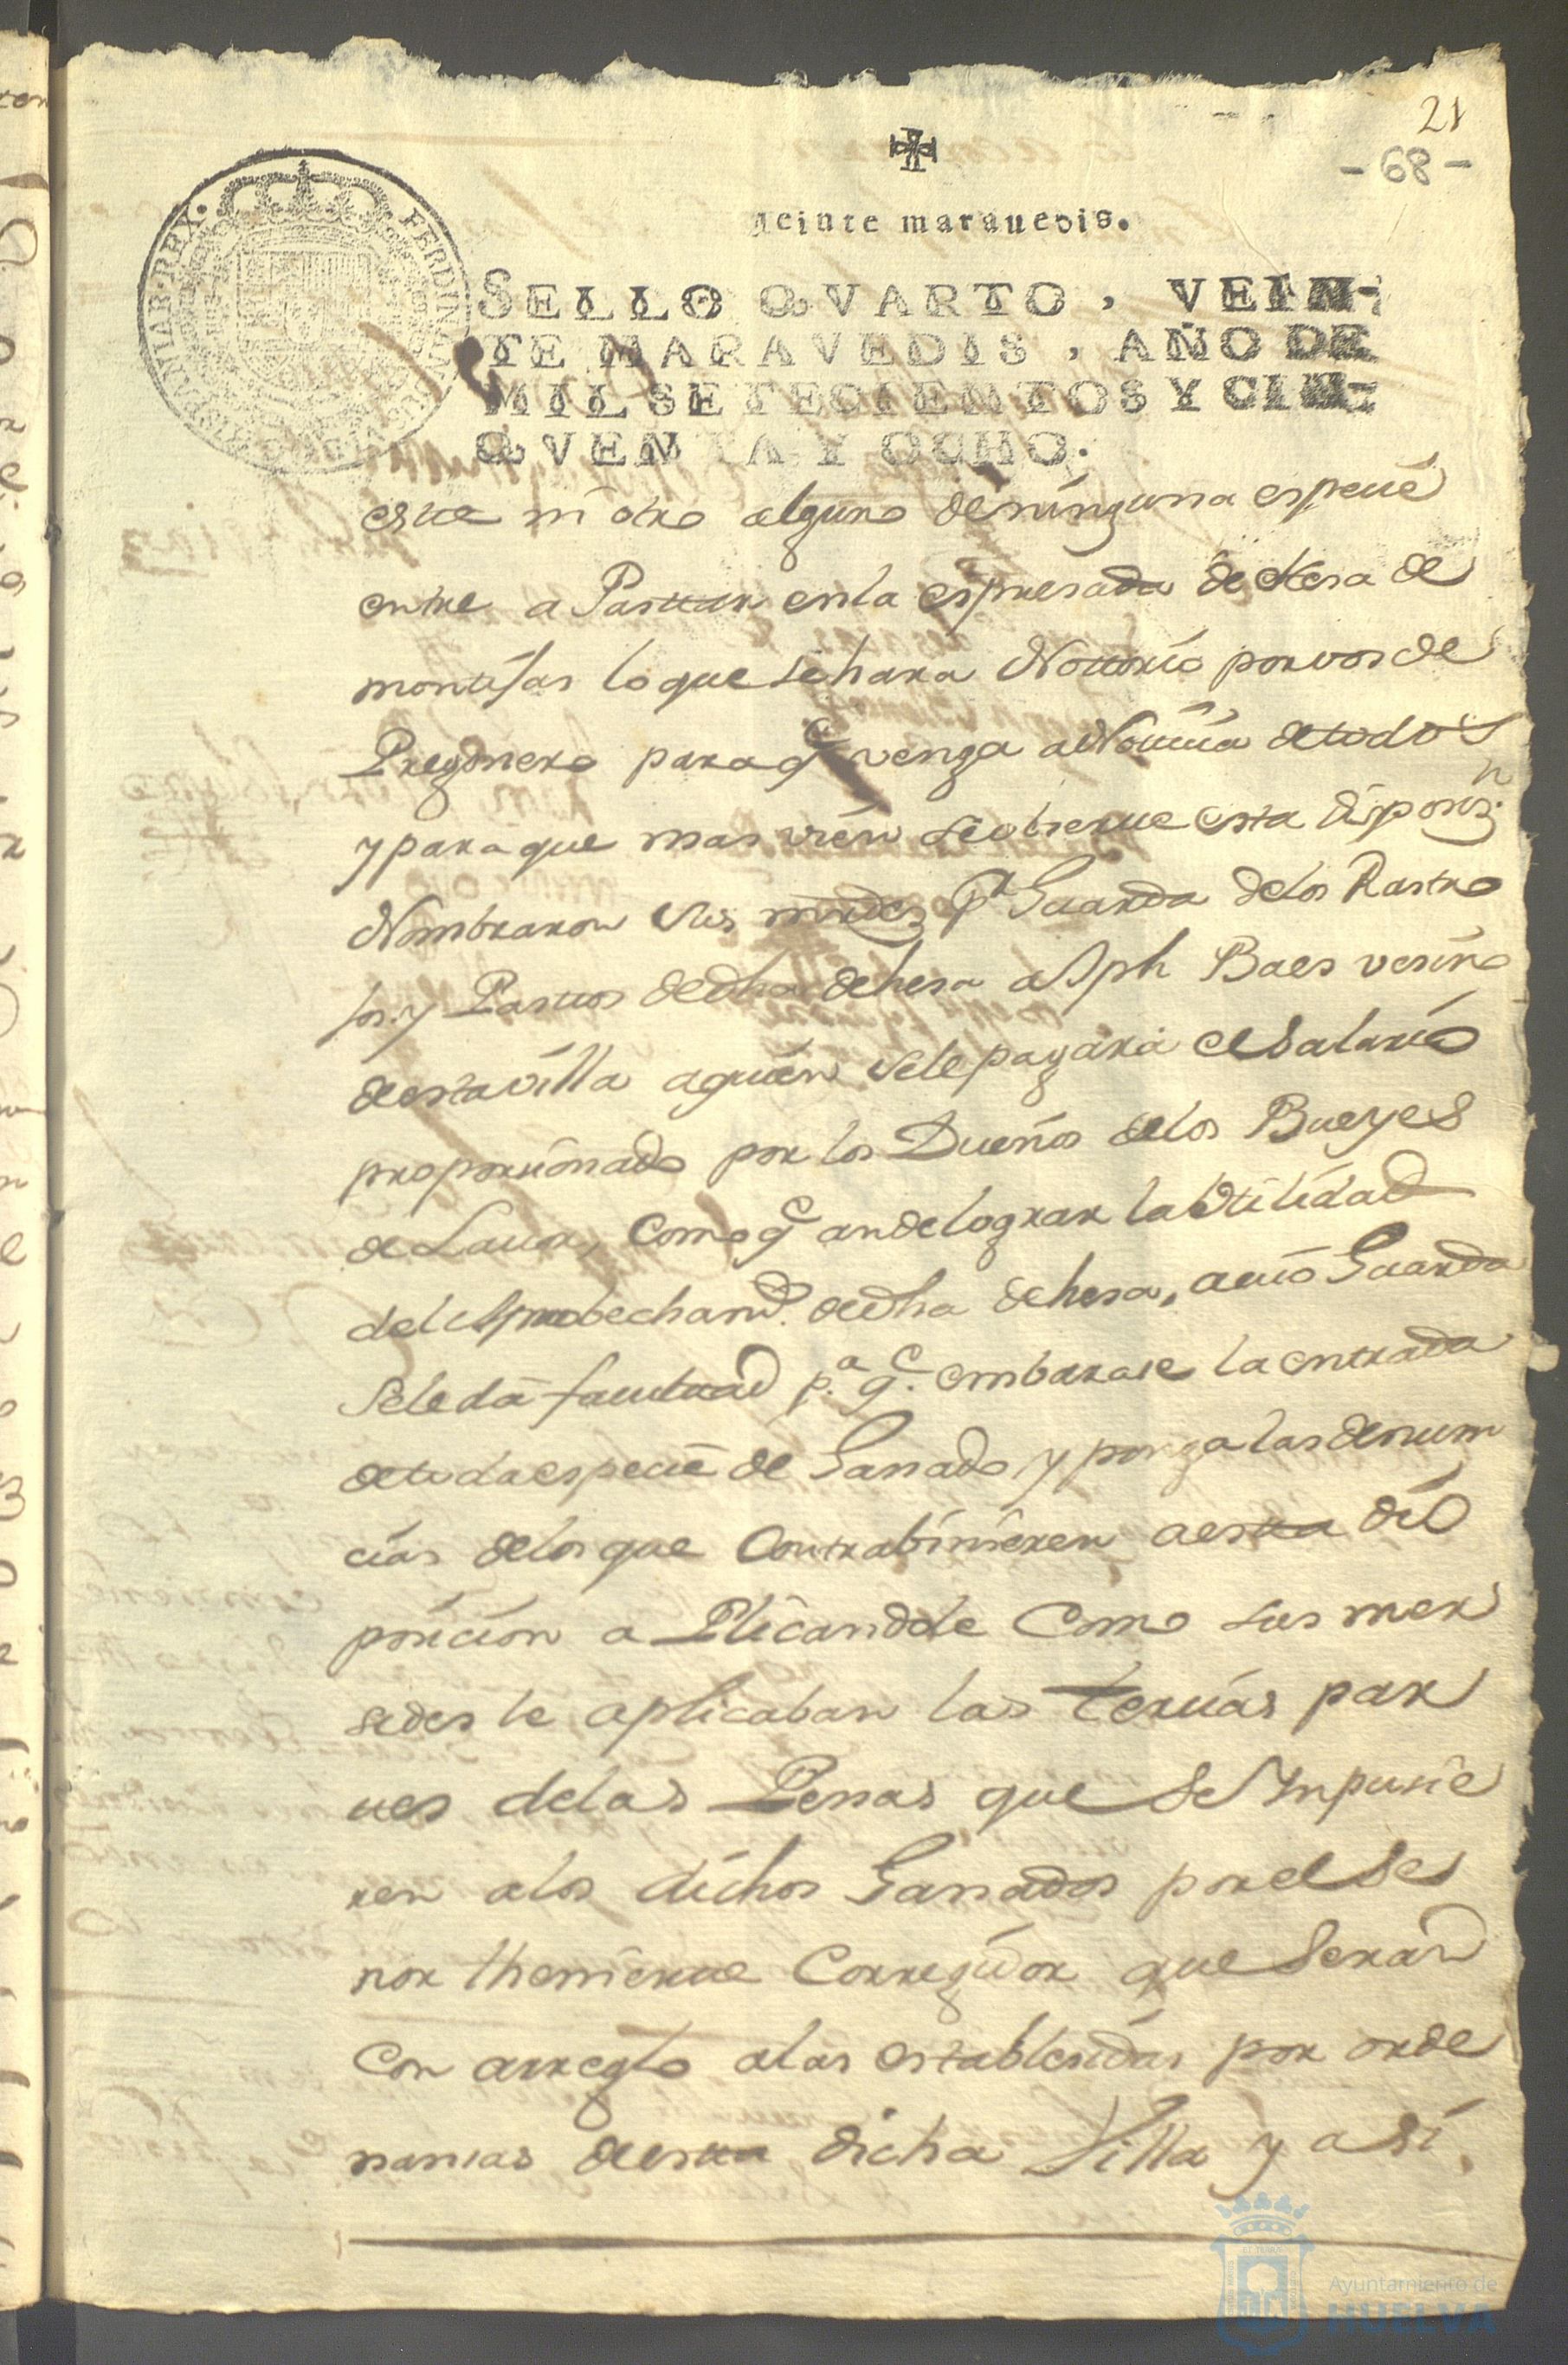 21
- 68 -
Veinte marauedis.
HISPANIAR. REX. FERDINANDUS
SELLO QVARTO, VEIN-
TE MARAVEDIS, AÑO DE
MIL SETECIENTOS Y CIN-
QVENTA Y OCHO.
este ni otro alguno de ninguna especie
entre a Pastar en la espresada dehesa de
montijas lo que se hara Nottorio por vos de
Pregonero para q^e venga a Noticia de todos
y para que mas vien se obserue esta disposiz^n.
Nombraron sus mrdes p^a Guarda de los Rastro
jos y Pastos de dha dehesa a Jph Baes vesino
de esta villa a quien se le pagará el Salario
proporsionado por los Dueños de los Bueyes
de Laua, como q^e an de lograr la Vtilidad
del Aprobecham^to. de dha dehesa, a cuio Guarda
se le da facultad p.^a q.^e embarase la entrada
de toda especie de Ganado y ponga las denun
cias de los que Contrabinieren a esta dis
posicion a Plicandole Como sus mer
sedes le aplicaban las tercias par
tes de las Penas que se Ympusie
ren a los dichos Ganados por el Se
ñor theniente Corregidor que Seran
Con arreglo a las establesidas por orde
nansas de esta dicha Villa y asi
Ayuntamiento de
HUELVA